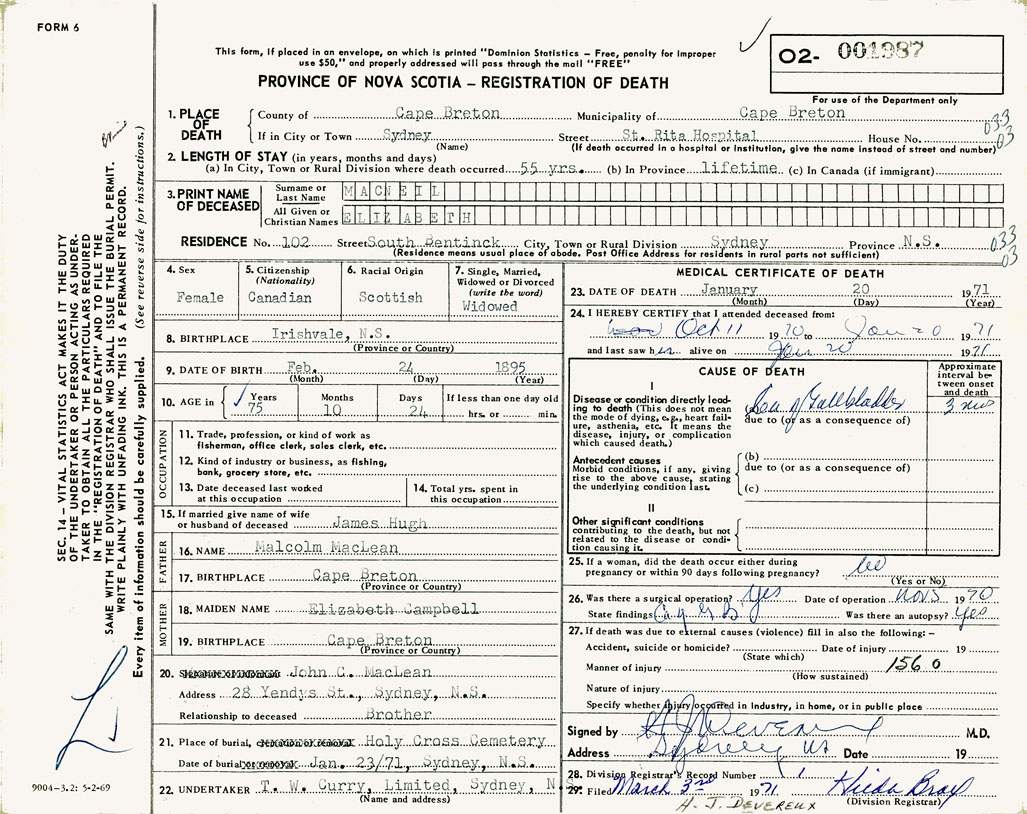 FORM 6
This form, if placed in an envelope, on which is printed "Dominion Statistics – Free, penalty for improper
use $50," and properly addressed will pass through the mail "FREE"
PROVINCE OF NOVA SCOTIA – REGISTRATION OF DEATH
O2- 001987
For use of the Department only
SEC. 14 – VITAL STATISTICS ACT MAKES IT THE DUTY
OF THE UNDERTAKER OR PERSON ACTING AS UNDER-
TAKER TO OBTAIN ALL THE PARTICULARS REQUIRED
IN THE "REGISTRATION OF DEATH" AND TO FILE THE
SAME WITH THE DIVISION REGISTRAR WHO SHALL ISSUE THE BURIAL PERMIT.
WRITE PLAINLY WITH UNFADING INK. THIS IS A PERMANENT RECORD.
Every item of information should be carefully supplied. (See reverse side for instructions.)
1. PLACE OF DEATH
County of Cape Breton Municipality of Cape Breton
033
If in City or Town Sydney Street St. Rita Hospital House No.
03
(Name) (If death occurred in a hospital or institution, give the name instead of street and number)
2. LENGTH OF STAY (in years, months and days)
(a) In City, Town or Rural Division where death occurred 55 yrs. (b) In Province lifetime (c) In Canada (if immigrant)
3. PRINT NAME OF DECEASED
Surname or Last Name MACNEIL
All Given or Christian Names ELIZABETH
RESIDENCE No. 102 Street South Bentinck City, Town or Rural Division Sydney Province N.S.
033
03
(Residence means usual place of abode. Post Office Address for residents in rural parts not sufficient)
4. Sex
Female
5. Citizenship
(Nationality)
Canadian
6. Racial Origin
Scottish
7. Single, Married,
Widowed or Divorced
(write the word)
Widowed
8. BIRTHPLACE Irishvale, N.S.
(Province or Country)
9. DATE OF BIRTH Feb. 24 1895
(Month) (Day) (Year)
10. AGE in
Years Months Days If less than one day old
75 10 24 hrs. or min.
OCCUPATION
11. Trade, profession, or kind of work as
fisherman, office clerk, sales clerk, etc.
12. Kind of industry or business, as fishing,
bank, grocery store, etc.
13. Date deceased last worked
at this occupation
14. Total yrs. spent in
this occupation
15. If married give name of wife
or husband of deceased James Hugh
FATHER
16. NAME Malcolm MacLean
17. BIRTHPLACE Cape Breton
(Province or Country)
MOTHER
18. MAIDEN NAME Elizabeth Campbell
19. BIRTHPLACE Cape Breton
(Province or Country)
20. John C. MacLean
Address 28 Yendys St., Sydney, N.S.
Relationship to deceased Brother
21. Place of burial, Holy Cross Cemetery
Date of burial Jan. 23/71, Sydney, N.S.
22. UNDERTAKER T. W. Curry, Limited, Sydney, N.S.
(Name and address)
9004-3.2: 5-2-69
MEDICAL CERTIFICATE OF DEATH
23. DATE OF DEATH January 20 1971
(Month) (Day) (Year)
24. I HEREBY CERTIFY that I attended deceased from:
Oct 11 1970 to Jan 20 1971
and last saw her alive on Jan 20 1971
CAUSE OF DEATH
Approximate
interval be-
tween onset
and death
I
Disease or condition directly lead-
ing to death (This does not mean
the mode of dying, e.g., heart fail-
ure, asthenia, etc. It means the
disease, injury, or complication
which caused death.)
Ca of Gallbladder
3 mos
due to (or as a consequence of)
Antecedent causes
Morbid conditions, if any, giving
rise to the above cause, stating
the underlying condition last.
(b)
due to (or as a consequence of)
(c)
II
Other significant conditions
contributing to the death, but not
related to the disease or condi-
tion causing it.
25. If a woman, did the death occur either during
pregnancy or within 90 days following pregnancy? No
(Yes or No)
26. Was there a surgical operation? Yes Date of operation Nov 5 1970
State findings Ca of GB Was there an autopsy? Yes
27. If death was due to external causes (violence) fill in also the following: –
Accident, suicide or homicide? Date of injury 19
(State which)
Manner of injury 156 0
(How sustained)
Nature of injury
Specify whether injury occurred in industry, in home, or in public place
Signed by H J Devereux M.D.
Address Sydney NS Date 19
28. Division Registrar's Record Number 1
29. Filed March 3rd 1971 Hilda Bray
(Division Registrar)
H. J. DEVEREUX